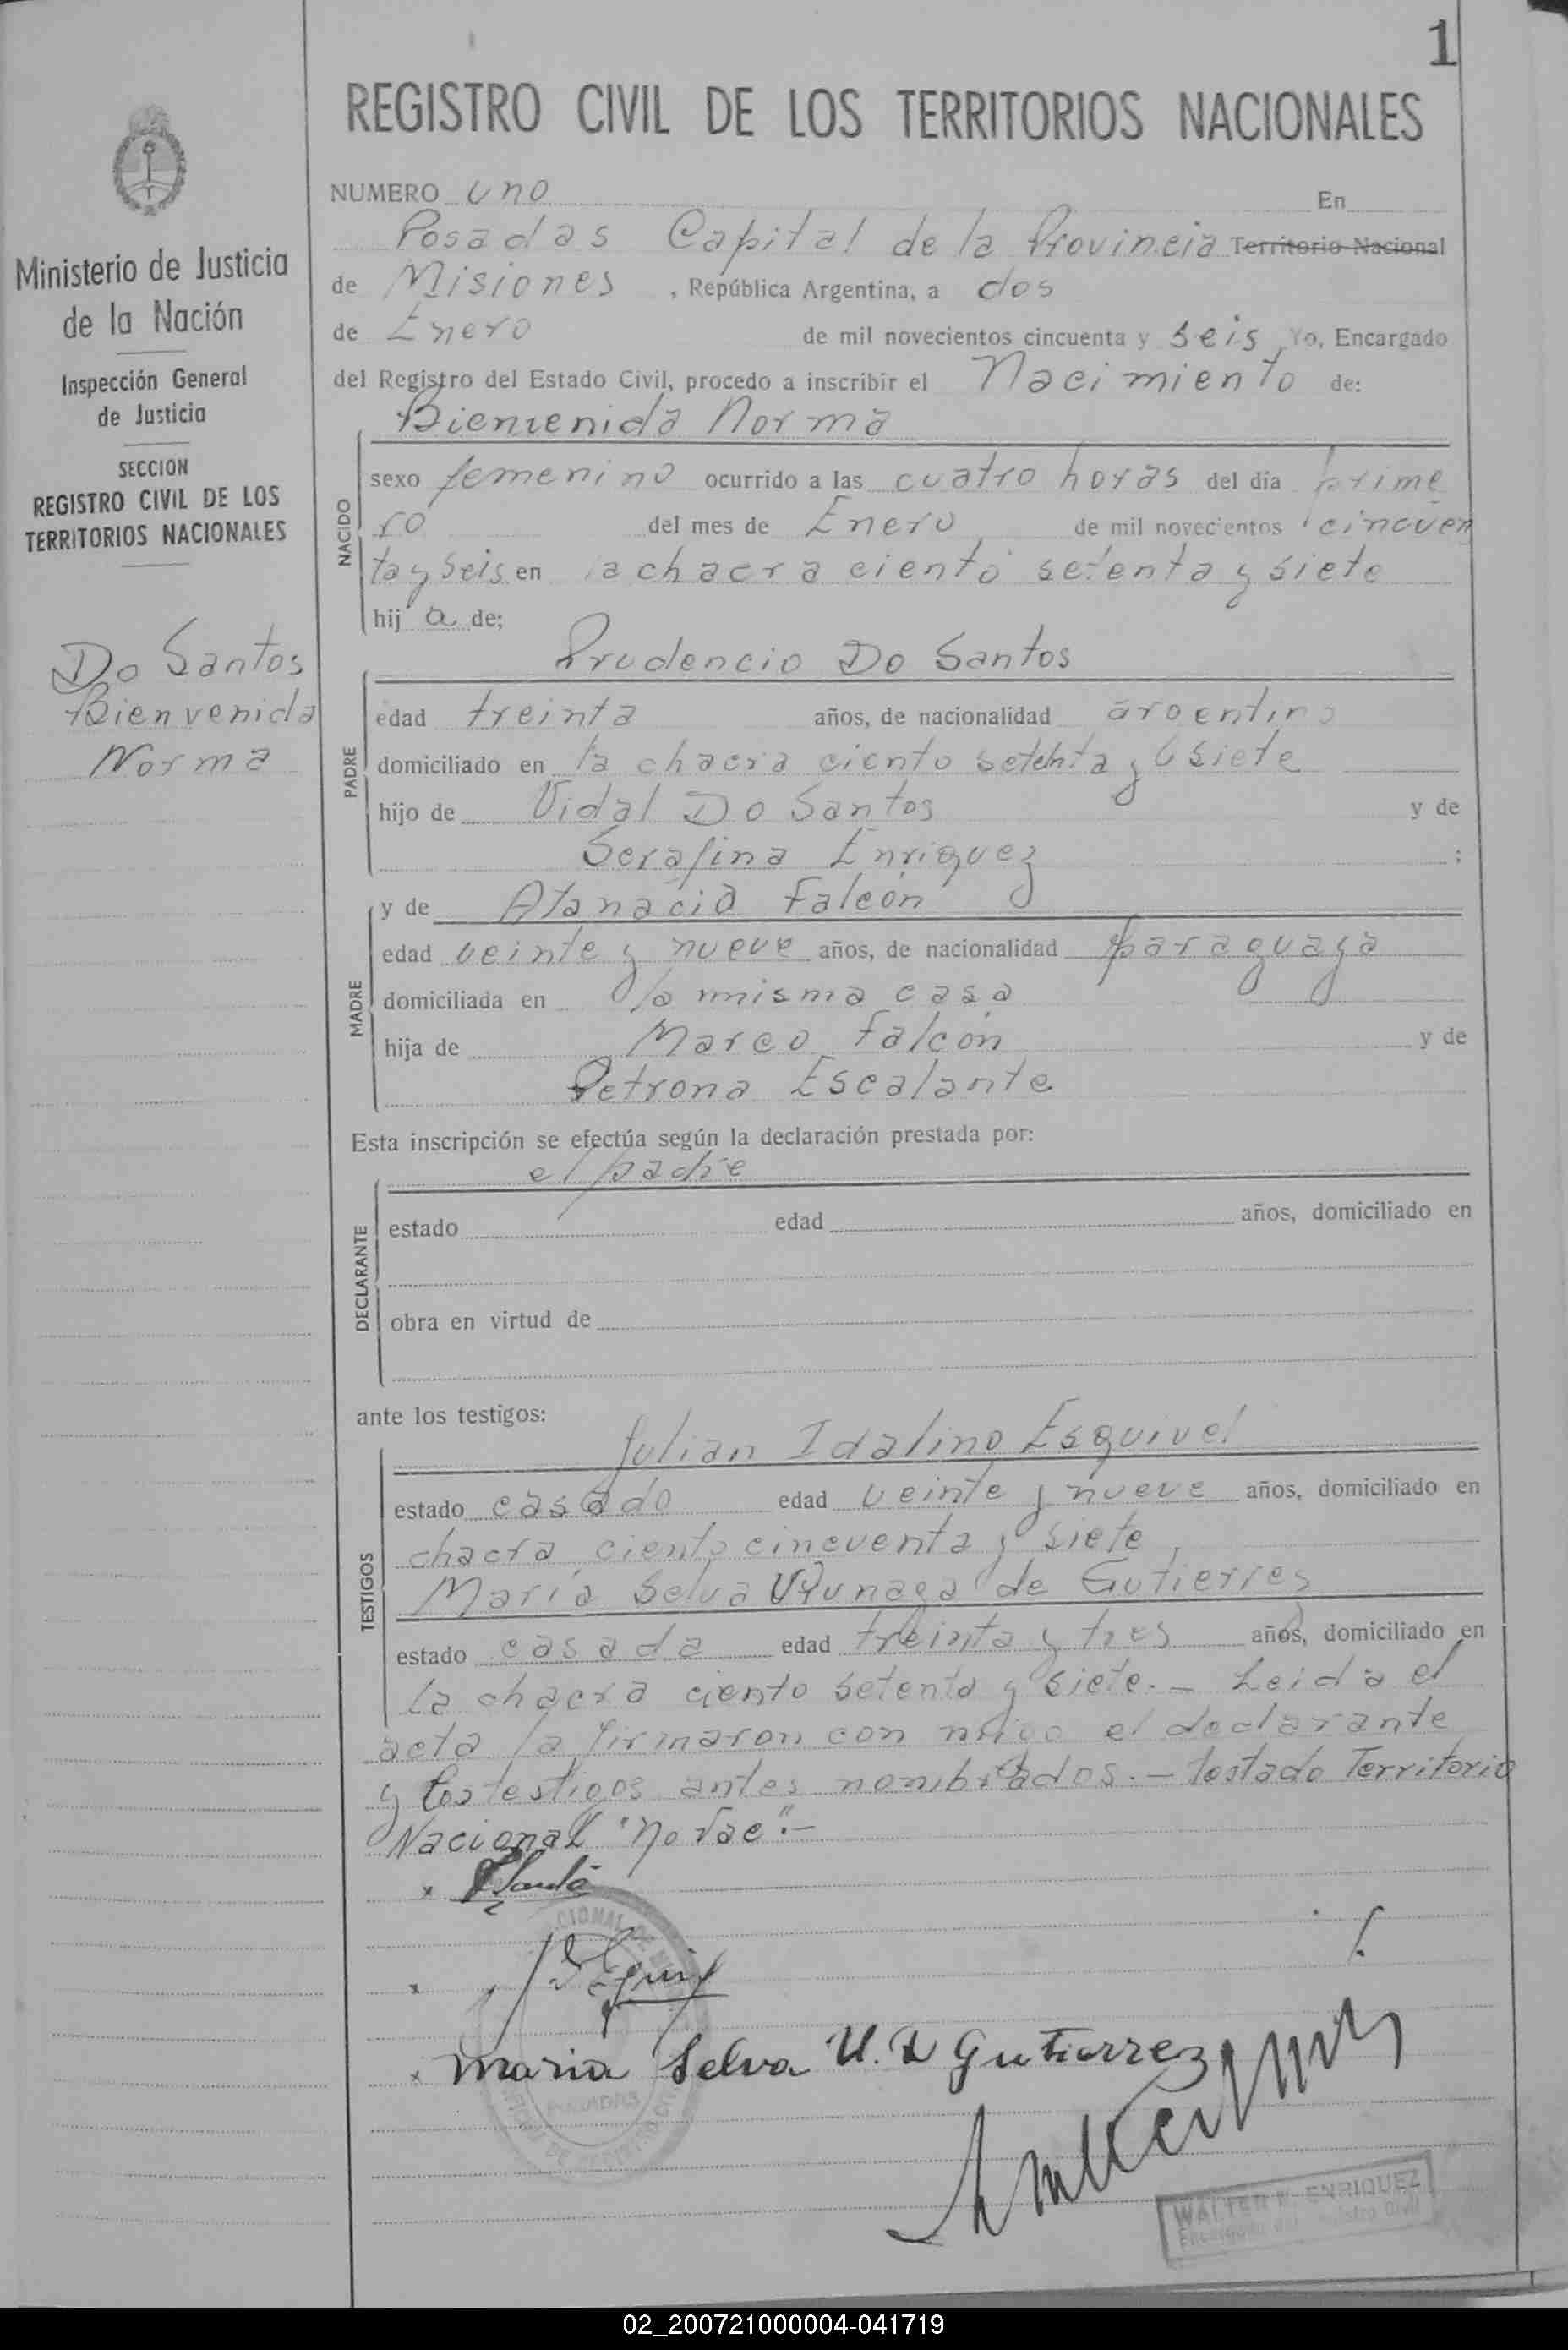 1
REGISTRO CIVIL DE LOS TERRITORIOS NACIONALES
Ministerio de Justicia
de la Nación
Inspección General
de Justicia
SECCION
REGISTRO CIVIL DE LOS
TERRITORIOS NACIONALES
Do Santos
Bienvenida
Norma
NUMERO uno En
Posadas Capital de la Provincia Territorio Nacional
de Misiones , República Argentina, a dos
de Enero de mil novecientos cincuenta y seis Yo, Encargado
del Registro del Estado Civil, procedo a inscribir el Nacimiento de:
Bienvenida Norma
NACIDO
sexo femenino ocurrido a las cuatro horas del día prime
ro del mes de Enero de mil novecientos cincuen
ta y seis en la chacra ciento setenta y siete
hij a de;
Prudencio Do Santos
PADRE
edad treinta años, de nacionalidad argentino
domiciliado en la chacra ciento setenta y siete
hijo de Vidal Do Santos y de
Serafina Enriquez ;
y de Atanacia Falcón
MADRE
edad veinte y nueve años, de nacionalidad paraguaya
domiciliada en la misma casa
hija de Marco Falcón y de
Petrona Escalante
Esta inscripción se efectúa según la declaración prestada por:
el padre
DECLARANTE
estado edad años, domiciliado en
obra en virtud de
ante los testigos:
Julian Idalino Esquivel
TESTIGOS
estado casado edad veinte y nueve años, domiciliado en
chacra ciento cincuenta y siete,
María Selva de Gutierrez
estado casada edad treinta y tres años, domiciliado en
la chacra ciento setenta y siete.- Leida el
acta la firmaron con migo el declarante
y los testigos antes nombrados.- testado Territorio
Nacional "no vae".-
Maria Selva U. D Gutierrez
POSADAS
WALTER ENRIQUEZ
Encargado del Registro Civil
02_200721000004-041719